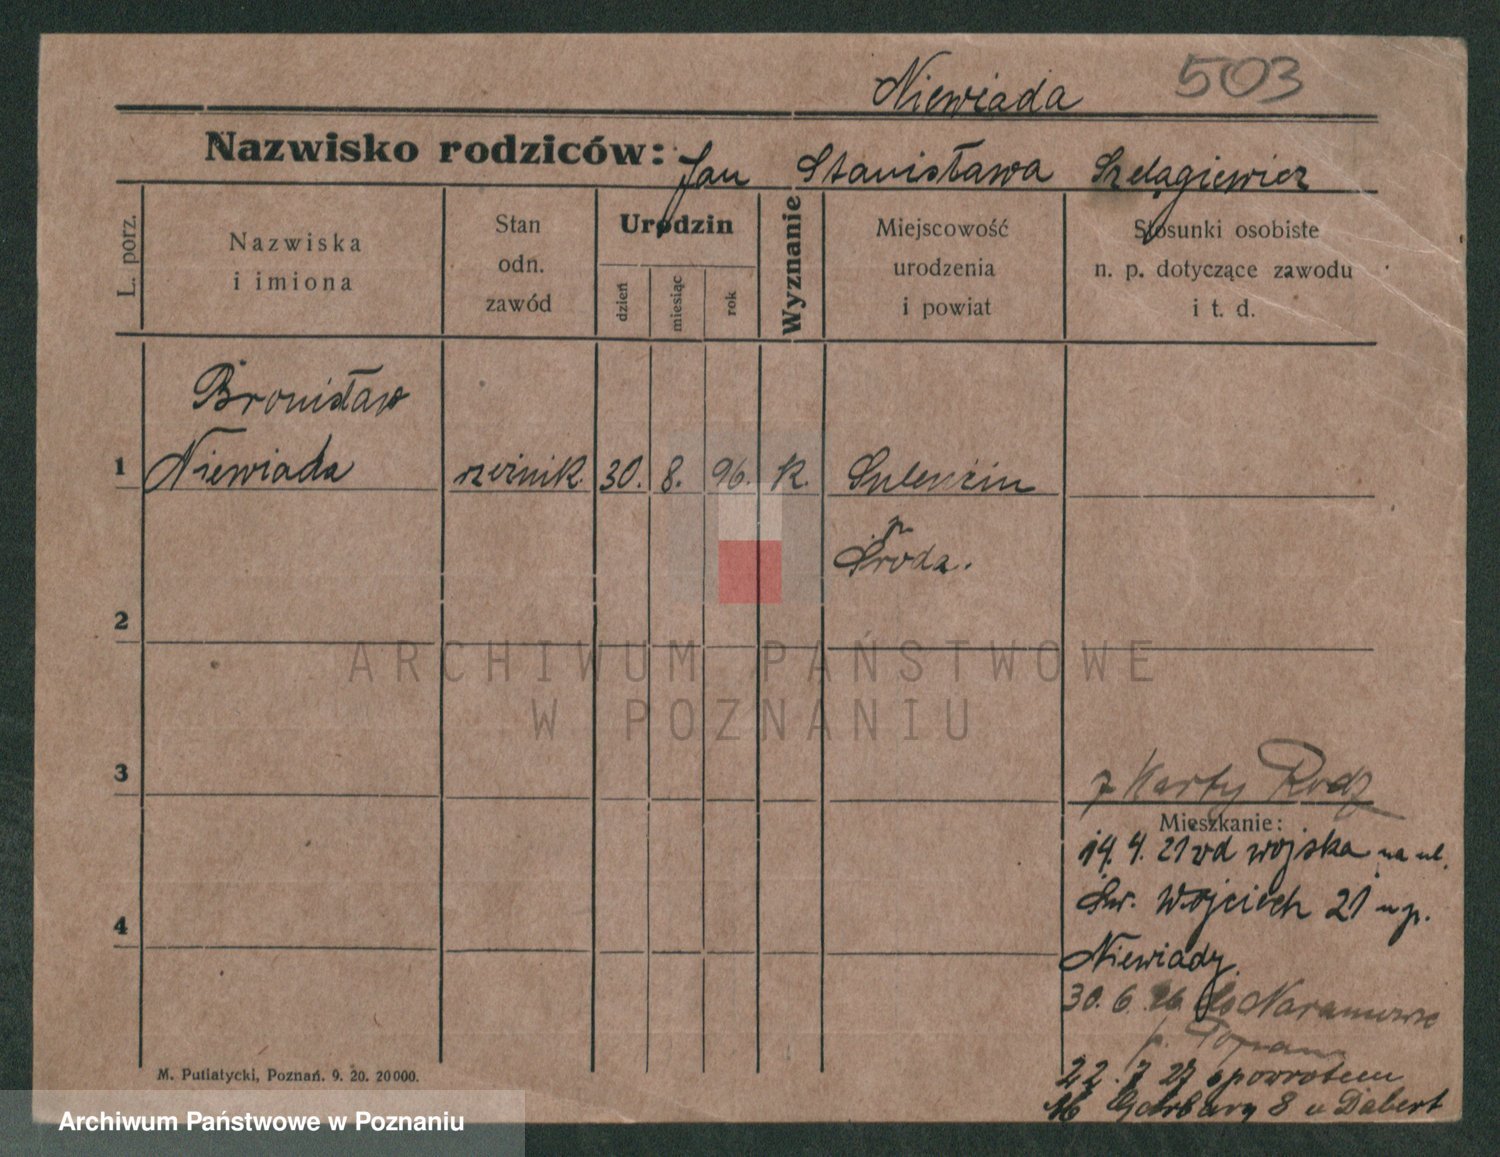 Niewiada 503
Nazwisko rodziców: Jan Stanisława Szelągiewicz
L. porz.
Nazwiska
i imiona
Stan
odn.
zawód
Urodzin
dzień
miesiąc
rok
Wyznanie
Miejscowość
urodzenia
i powiat
Stosunki osobiste
n. p. dotyczące zawodu
i t. d.
Bronisław
1 Niewiada rzeźnik. 30. 8. 96. K. Sulęcin
p.
Środa.
2
3
4
z Karty Rodz
Mieszkanie:
14. 4. 21 od wojska na ul.
Św. Wojciech 21 u p.
Niewiady.
30. 6. 26 do Naramowic
p. Poznań
22. 7 27 spowrotem
Garbary 8 u Dabert
M. Putiatycki, Poznań. 9. 20. 20000.
ARCHIWUM PAŃSTWOWE
W POZNANIU
Archiwum Państwowe w Poznaniu